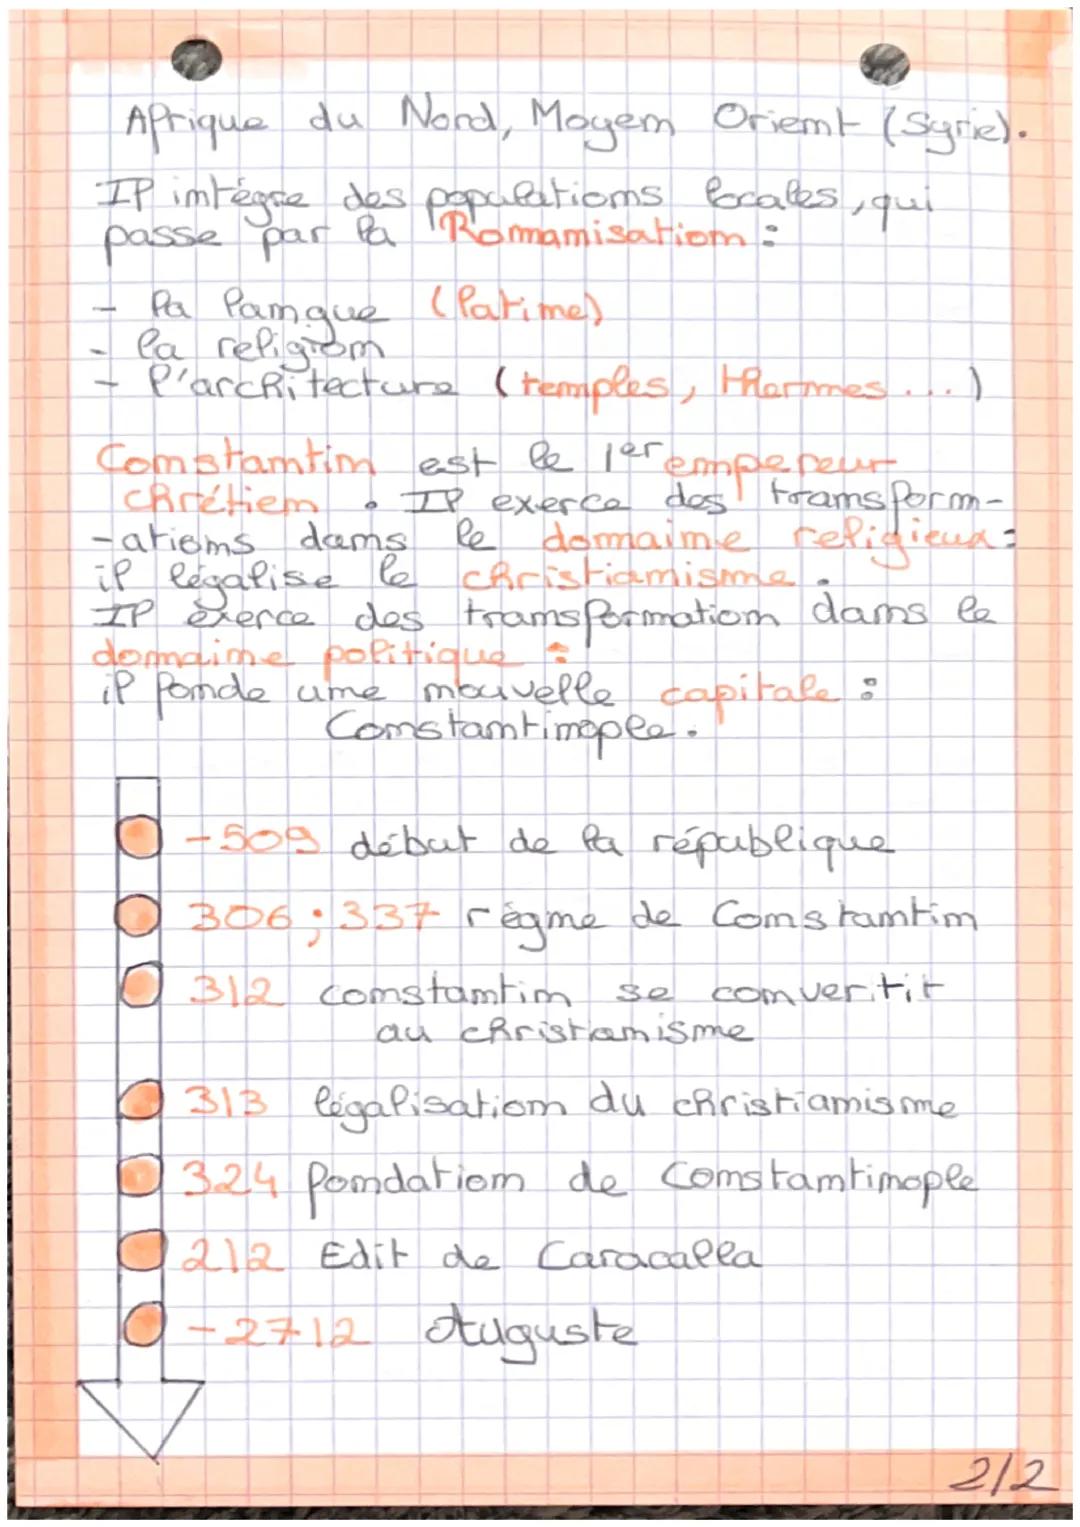 Afrique du Nord, Moyen Orient (Syrie).
Il intègre des populations locales, qui
passe par la Romanisation :
- la langue (latine)
- la religion
- l'architecture (temples, thermes ...)
Constantin est le 1er empereur
chrétien. Il exerce des transform-
-ations dans le domaine religieux :
il légalise le christianisme.
Il exerce des transformation dans le
domaine politique :
il fonde une nouvelle capitale :
Constantinople.
-509 début de la république
306 ; 337 règne de Constantin
312 constantin se converitit
au christianisme
313 légalisation du christianisme
324 fondation de Constantinople
212 Edit de Caracalla
-2712 Auguste
2/2